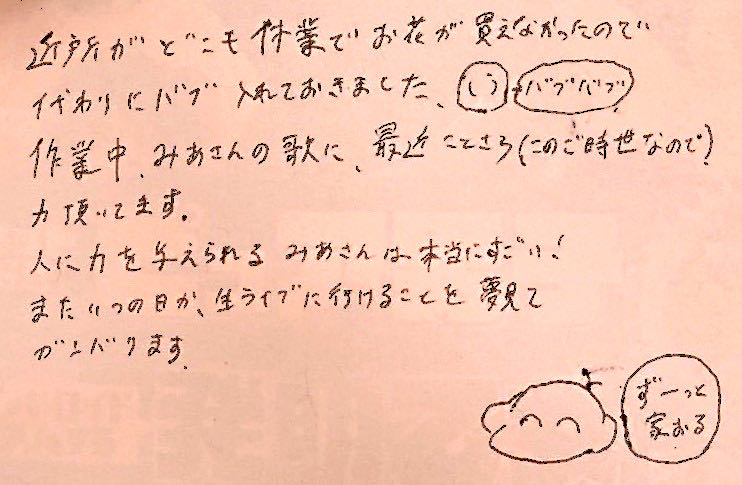 近所がどこも休業でお花が買えなかったので
代わりにバブ入れておきました。 バブバブ
作業中、みあさんの歌に、最近ことさら(このご時世なので)
力頂いてます。
人に力を与えられるみあさんは本当にすごい!
またいつの日か、生ライブに行けることを夢見て
ガンバります。
ずーっと
家おる